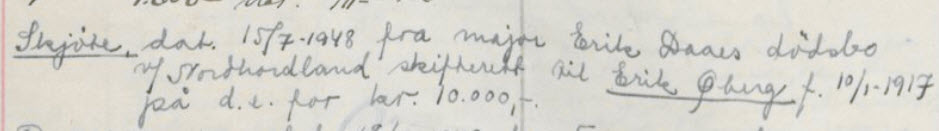 Skjöte, dat. 15/7-1948 fra major Erik Daaes dödsbo
v/ Nordhordland skifterett til Erik Øberg f. 10/1-1917
på d.e. for kr. 10.000,-.